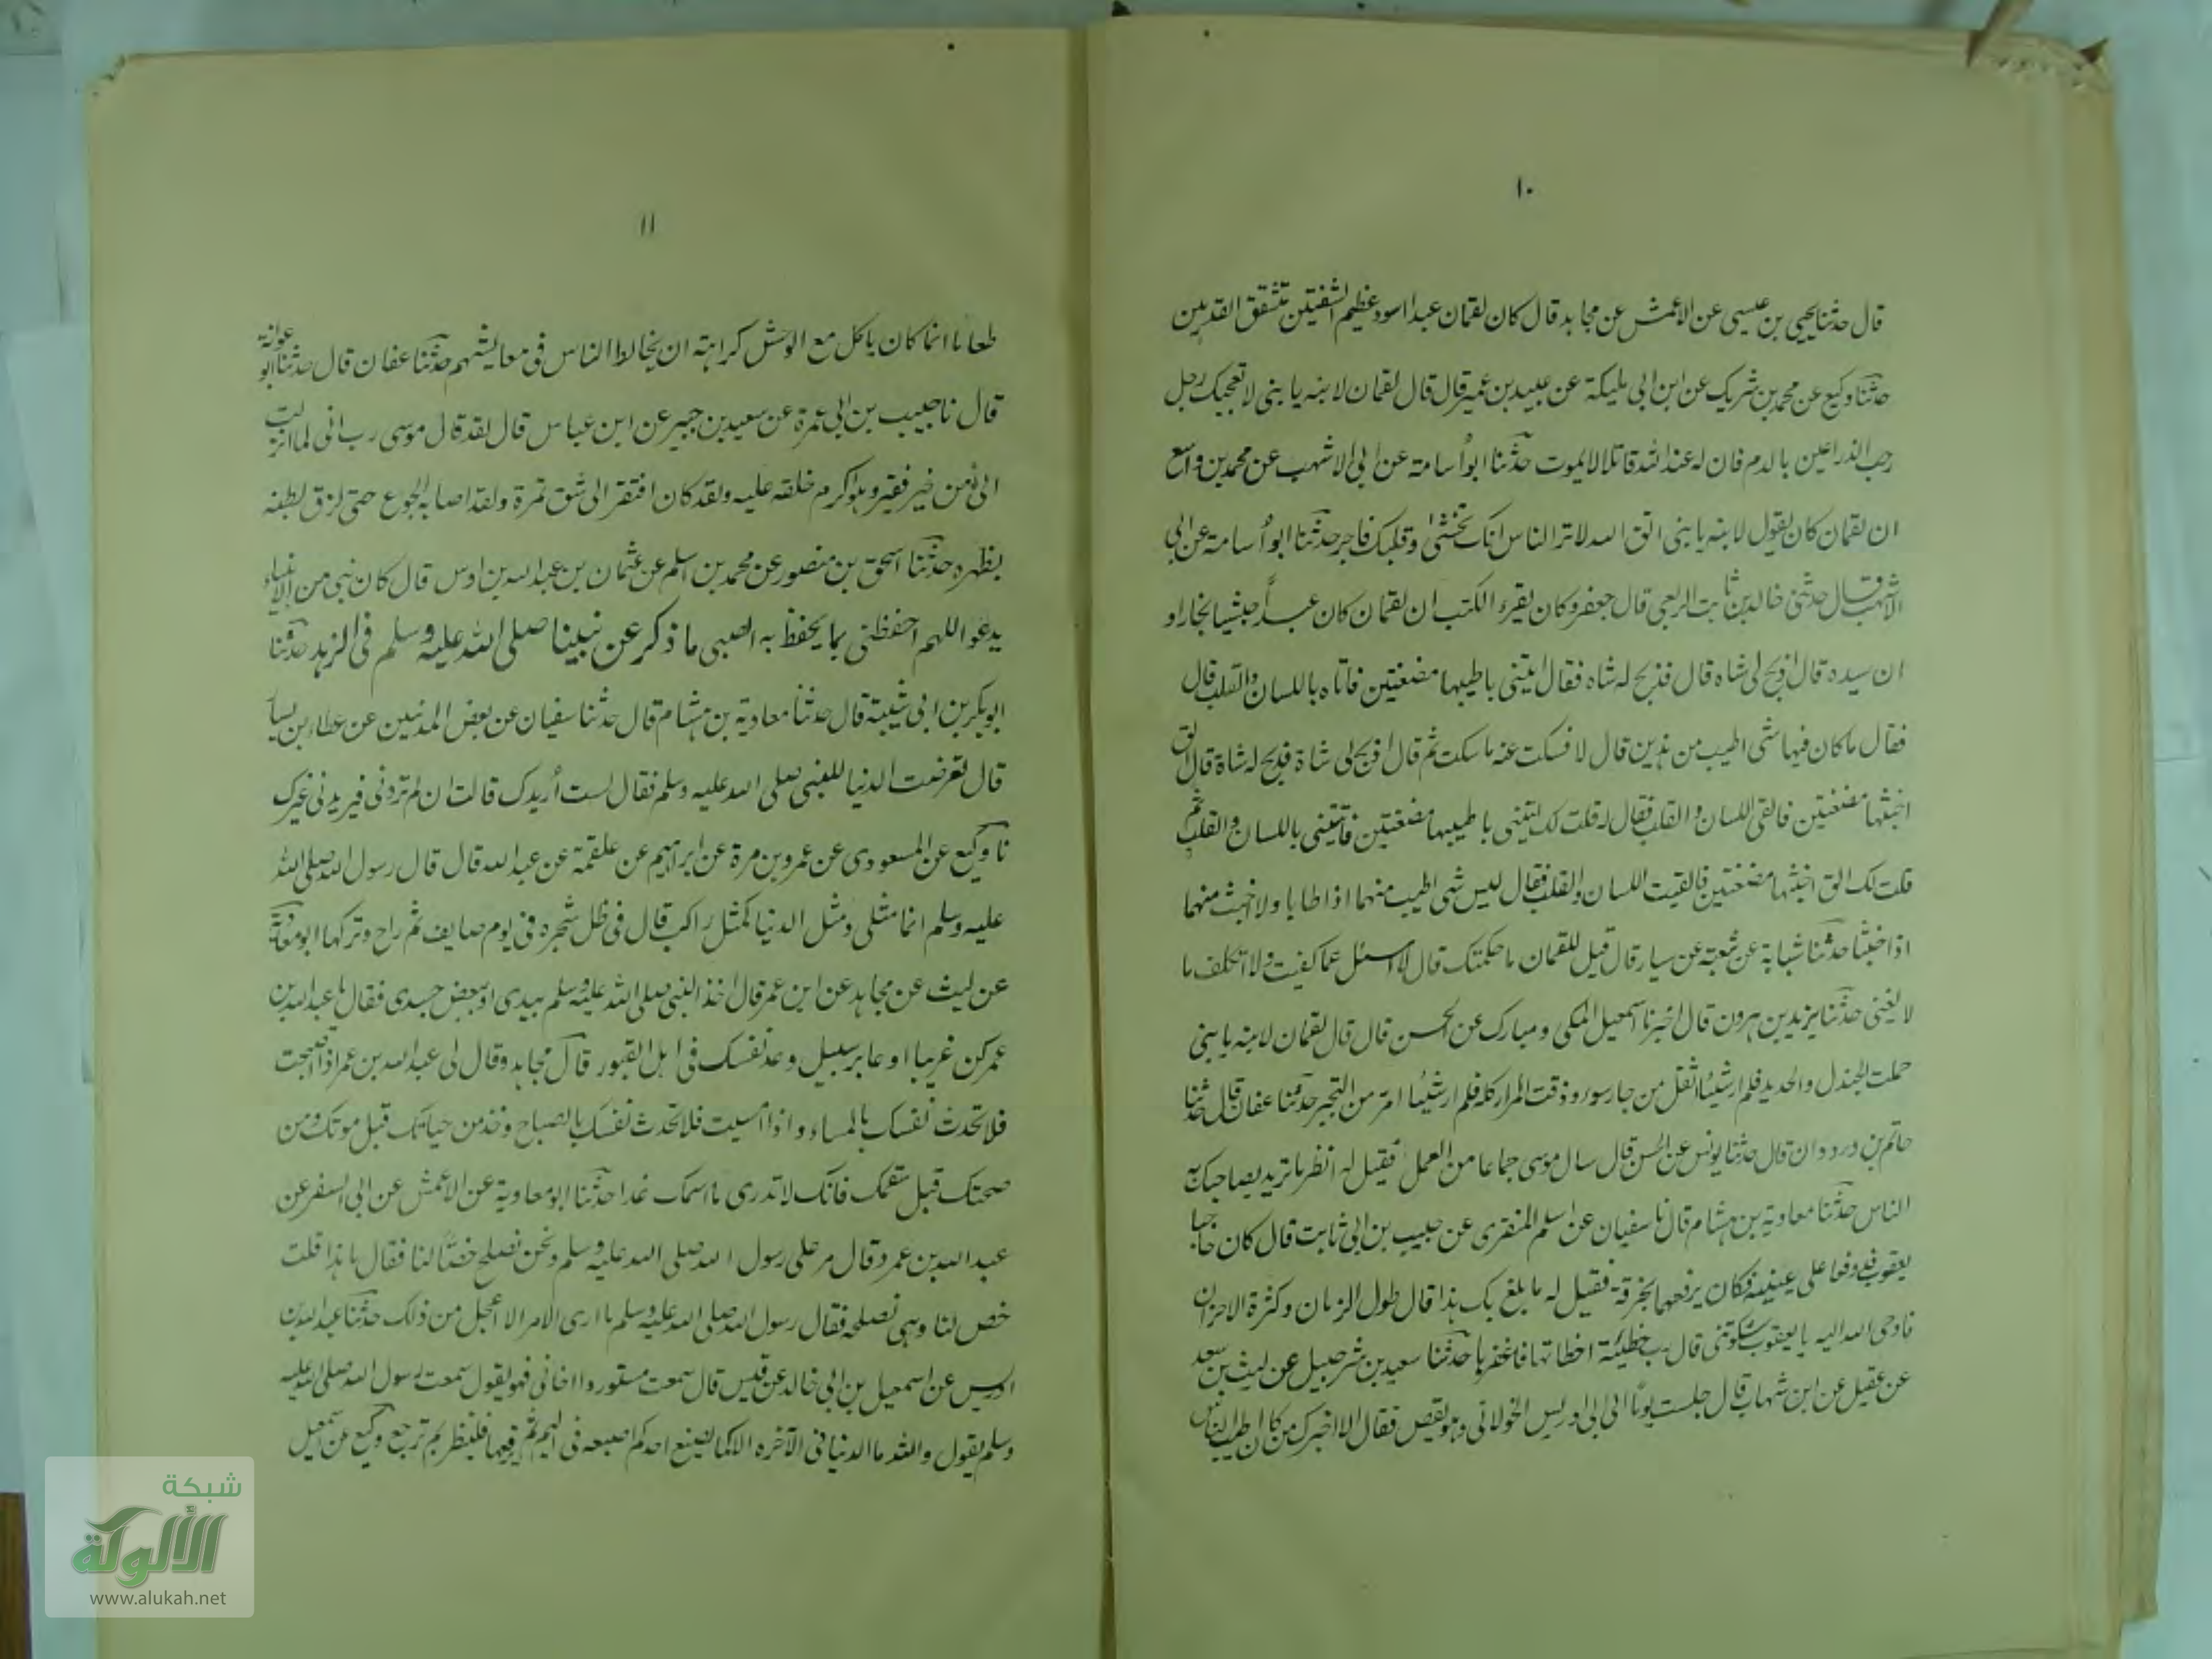 ١٠
قال حدثنا يحيى بن عيسى عن الاعمش عن مجاهد قال كان لقمان عبدا اسود عظيم الشفتين تشقق القدمين
حدثنا وكيع عن محمد بن شريك عن ابن ابى مليكة عن عبيد بن عمير قال قال لقمان لابنه يا بنى لا تعجبك رجل
رحب الذراعين بالدم فان له عند الله قاتلا لا يموت حدثنا ابو أسامة عن ابى الاشهب عن محمد بن واسع
ان لقمان كان يقول لابنه يا بنى اتق الله لا تر الناس انك تخشى وقلبك فاجر حدثنا ابو أسامة عن ابى
الاشهب قال حدثنى خالد بن ثابت الربعى قال جعفر وكان يقرء الكتب ان لقمان كان عبدا حبشيا نجارا و
ان سيده قال اذبح لى شاه قال فذبح له شاه فقال ايتنى باطيبها مضغتين فاتاه باللسان والقلب قال
فقال ما كان فيها شى اطيب من هذين قال لا فسكت عنه ما سكت ثم قال اذبح لى شاة فذبح له شاة قال الق
اخبثها مضغتين فالقى اللسان والقلب فقال له قلت لك ايتنى باطيبها مضغتين فاتيتنى باللسان والقلب ثم
قلت لك الق اخبثها مضغتين فالقيت اللسان والقلب فقال ليس شى اطيب منهما اذا طابا ولا اخبث منهما
اذا خبثا حدثنا شبابة عن شعبة عن سيار قال قيل للقمان ما حكمتك قال لا اسئل عما كفيت ولا اتكلف ما
لا يعنى حدثنا يزيد بن هرون قال اخبرنا اسمعيل المكى ومبارك عن الحسن قال قال لقمان لابنه يا بنى
حملت الجندل والحديد فلم ار شيئا اثقل من جار سوء وذقت المرار كله فلم ار شيئا امر من التجبر حدثنا عفان قال حدثنا
حاتم بن دردوان قال حدثنا يونس عن الحسن قال سال موسى جماعا من العمل فقيل له انظر ما تريد يصاحبك به
الناس حدثنا معاوية بن هشام قال نا سفيان عن اسلم المنقرى عن حبيب بن ابى ثابت قال كان حاجبا
يعقوب قد وقعا على عينيه فكان يرفعهما بخرقة فقيل له ما بلغ بك هذا قال طول الزمان وكثرة الاحزان
فاوحى الله اليه يا يعقوب شكوتنى قال رب خطيئة اخطاتها فاغفرها حدثنا سعيد بن شرحبيل عن ليث بن سعد
عن عقيل عن ابن شهاب قال جلست يوما الى ابى ادريس الخولانى وهو يقص فقال الا اخبركم من كان اطيب الناس
١١
طعاما انما كان ياكل مع الوحش كراهته ان يخالط الناس فى معايشهم حدثنا عفان قال حدثنا ابو عوانة
قال نا حبيب بن ابى عمرة عن سعيد بن جبير عن ابن عباس قال لقد قال موسى رب انى لما انزلت
الى من خير فقير وهو اكرم خلقه عليه ولقد كان افتقر الى شق تمرة ولقد اصابه الجوع حتى لزق بطنه
بظهره حدثنا اسحق بن منصور عن محمد بن اسلم عن عثمان بن عبد الله بن اوس قال كان نبى من الانبياء
يدعو اللهم احفظنى بما يحفظ به الصبى ما ذكر عن نبينا صلى الله عليه وسلم فى الزهد حدثنا
ابو بكر بن ابى شيبة قال حدثنا معاوية بن هشام قال حدثنا سفيان عن بعض المدنيين عن عطاء بن يسار
قال تعرضت الدنيا للنبى صلى الله عليه وسلم فقال لست أريدك قالت ان لم تردنى فيريدنى غيرك
نا وكيع عن المسعودى عن عمرو بن مرة عن ابراهيم عن علقمة عن عبد الله قال قال رسول الله صلى الله
عليه وسلم انما مثلى ومثل الدنيا كمثل راكب قال فى ظل شجرة فى يوم صايف ثم راح وتركها ابو معوية
عن ليث عن مجاهد عن ابن عمر قال اخذ النبى صلى الله عليه وسلم بيدى او ببعض جسدى فقال يا عبد الله بن
عمر كن غريبا او عابر سبيل وعد نفسك فى اهل القبور قال مجاهد وقال لى عبد الله بن عمر اذا اصبحت
فلا تحدث نفسك بالمساء واذا امسيت فلا تحدث نفسك بالصباح وخذ من حياتك قبل موتك ومن
صحتك قبل سقمك فانك لا تدرى ما اسمك غدا حدثنا ابو معاوية عن الاعمش عن ابى السفر عن
عبد الله بن عمرو قال مر على رسول الله صلى الله عليه وسلم ونحن نصلح خصا لنا فقال ما هذا قلت
خص لنا وهى نصلحه فقال رسول الله صلى الله عليه وسلم ما ارى الامر الا اعجل من ذلك حدثنا عبد الله بن
ادريس عن اسمعيل بن ابى خالد عن قيس قال سمعت مستوردا اخا بنى فهر يقول سمعت رسول الله صلى الله عليه
وسلم يقول والله ما الدنيا فى الآخره الا كما يضع احدكم اصبعه فى اليم ثم يرفعها فلينظر بم ترجع وكيع عن اسمعيل
شبكة
الألوكة
www.alukah.net